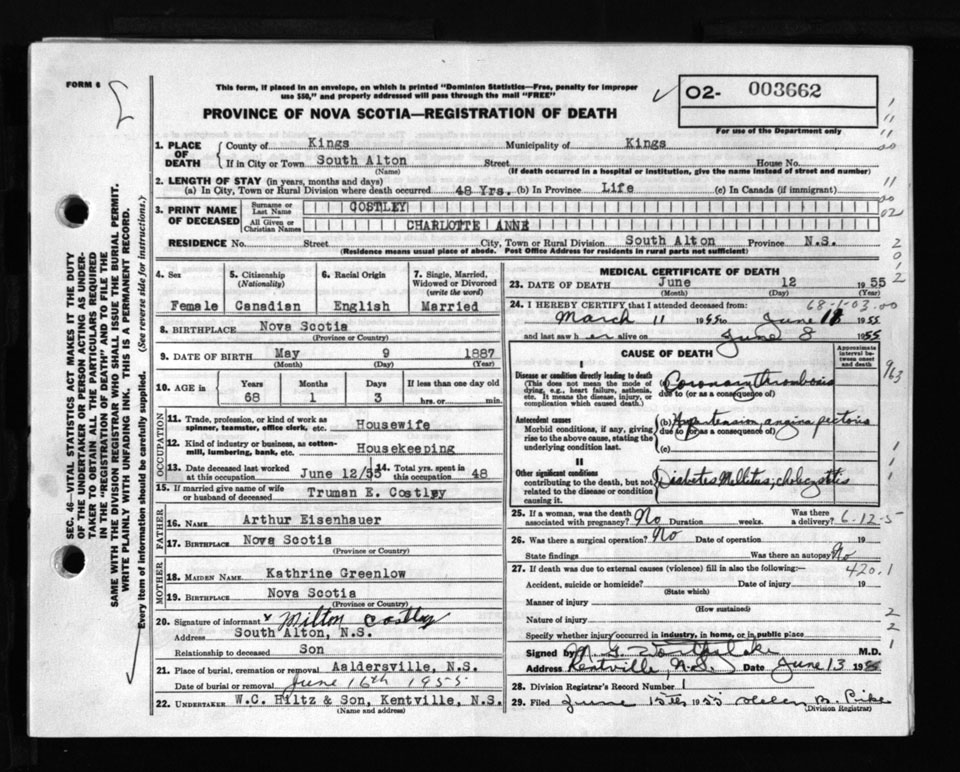 FORM 6
This form, if placed in an envelope, on which is printed "Dominion Statistics—Free, penalty for improper
use $50," and properly addressed will pass through the mail "FREE"
PROVINCE OF NOVA SCOTIA—REGISTRATION OF DEATH
02- 003662
For use of the Department only
SEC. 46—VITAL STATISTICS ACT MAKES IT THE DUTY
OF THE UNDERTAKER OR PERSON ACTING AS UNDER-
TAKER TO OBTAIN ALL THE PARTICULARS REQUIRED
IN THE "REGISTRATION OF DEATH" AND TO FILE THE
SAME WITH THE DIVISION REGISTRAR WHO SHALL ISSUE THE BURIAL PERMIT.
WRITE PLAINLY WITH UNFADING INK. THIS IS A PERMANENT RECORD.
Every item of information should be carefully supplied. (See reverse side for instructions.)
1. PLACE OF DEATH
County of Kings Municipality of Kings
If in City or Town South Alton Street House No.
(Name) (If death occurred in a hospital or institution, give the name instead of street and number)
2. LENGTH OF STAY (in years, months and days)
(a) In City, Town or Rural Division where death occurred 48 Yrs. (b) In Province Life (c) In Canada (if immigrant)
3. PRINT NAME OF DECEASED
Surname or Last Name COSTLEY
All Given or Christian Names CHARLOTTE ANNE
RESIDENCE No. Street City, Town or Rural Division South Alton Province N.S.
(Residence means usual place of abode. Post Office Address for residents in rural parts not sufficient)
4. Sex Female
5. Citizenship (Nationality) Canadian
6. Racial Origin English
7. Single, Married, Widowed or Divorced (write the word) Married
8. BIRTHPLACE Nova Scotia
(Province or Country)
9. DATE OF BIRTH May 9 1887
(Month) (Day) (Year)
10. AGE in Years Months Days If less than one day old
68 1 3 hrs. or min.
OCCUPATION
11. Trade, profession, or kind of work as spinner, teamster, office clerk, etc. Housewife
12. Kind of industry or business, as cotton-mill, lumbering, bank, etc. Housekeeping
13. Date deceased last worked at this occupation June 12/55 14. Total yrs. spent in this occupation 48
15. If married give name of wife or husband of deceased Truman E. Costley
FATHER
16. NAME Arthur Eisenhauer
17. BIRTHPLACE Nova Scotia
(Province or Country)
MOTHER
18. MAIDEN NAME Kathrine Greenlow
19. BIRTHPLACE Nova Scotia
(Province or Country)
20. Signature of informant x Milton Costley
Address South Alton, N.S.
Relationship to deceased Son
21. Place of burial, cremation or removal Aaldersville, N.S.
Date of burial or removal June 16th 1955
22. UNDERTAKER W.C. Hiltz & Son, Kentville, N.S.
(Name and address)
MEDICAL CERTIFICATE OF DEATH
23. DATE OF DEATH June 12 1955
(Month) (Day) (Year)
24. I HEREBY CERTIFY that I attended deceased from: 68-1-03-00
March 11 1955 to June 1955
and last saw her alive on June 8 1955
CAUSE OF DEATH
Approximate interval between onset and death
I
Disease or condition directly leading to death
(This does not mean the mode of dying, e.g., heart failure, asthenia, etc. It means the disease, injury, or complication which caused death.)
(a) Coronary thrombosis
due to (or as a consequence of)
Antecedent causes
Morbid conditions, if any, giving rise to the above cause, stating the underlying condition last.
(b) Hypertension, angina pectoris
due to (or as a consequence of)
(c)
II
Other significant conditions
contributing to the death, but not related to the disease or condition causing it.
Diabetes Mellitus; cholecystitis
25. If a woman, was the death associated with pregnancy? No Duration weeks. Was there a delivery? 6-12-5
26. Was there a surgical operation? No Date of operation 19
State findings Was there an autopsy No
27. If death was due to external causes (violence) fill in also the following:— 420.1
Accident, suicide or homicide? Date of injury 19
(State which)
Manner of injury
(How sustained)
Nature of injury
Specify whether injury occurred in industry, in home, or in public place
Signed by M.D.
Address Kentville, N.S. Date June 13 1955
28. Division Registrar's Record Number 1
29. Filed June 15th 1955 Helen B. Pike
(Division Registrar)